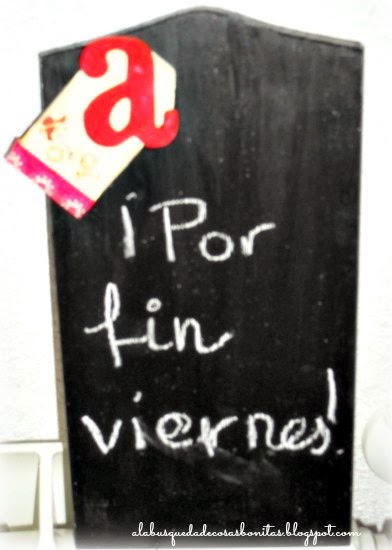 a
¡Por
fin
viernes!
alabusquedadecosasbonitas.blogspot.com